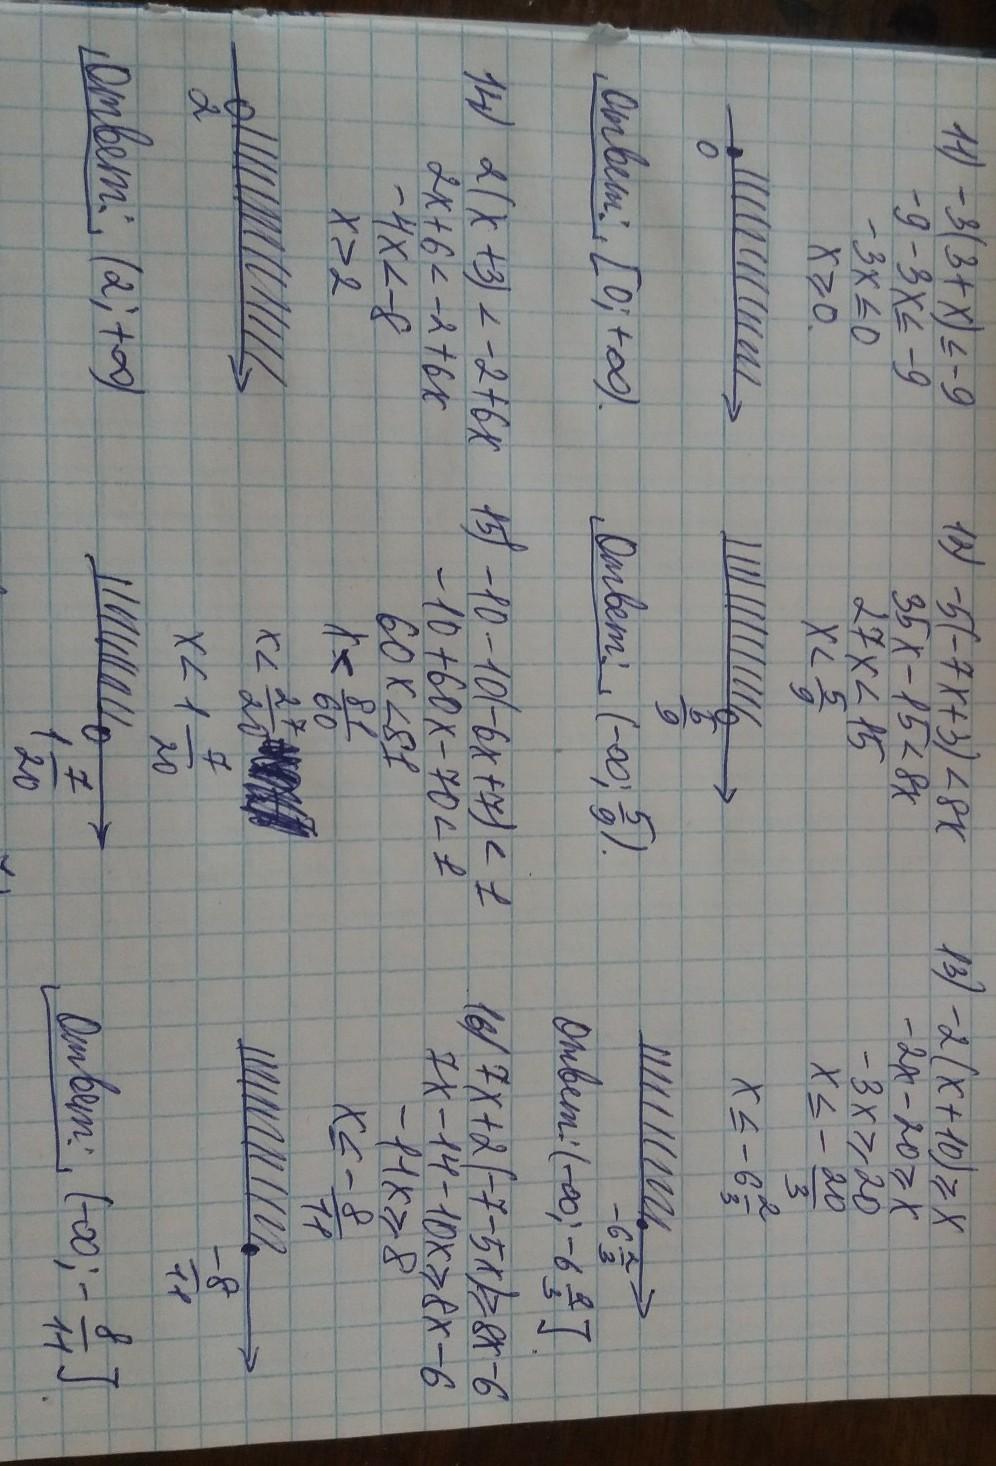 11) -3(3+x) ≤ -9
-9 - 3x ≤ -9
-3x ≤ 0
x ≥ 0.
0
Ответ: [0; +∞).
12) -5(-7x+3) < 8x
35x - 15 < 8x
27x < 15
x < 5/9
5/9
Ответ: (-∞; 5/9).
13) -2(x+10) ≥ x
-2x - 20 ≥ x
-3x ≥ 20
x ≤ -20/3
x ≤ -6 2/3
-6 2/3
Ответ: (-∞; -6 2/3].
14) 2(x+3) < -2+6x
2x+6 < -2+6x
-4x < -8
x > 2
2
Ответ: (2; +∞)
15) -10 - 10(-6x+7) < 1
-10 + 60x - 70 < 1
60x < 81
x < 81/60
x < 27/20
x < 1 7/20
1 7/20
16) 7x+2(-7-5x) ≥ 8x-6
7x - 14 - 10x ≥ 8x - 6
-11x ≥ 8
x ≤ -8/11
-8/11
Ответ: (-∞; -8/11].